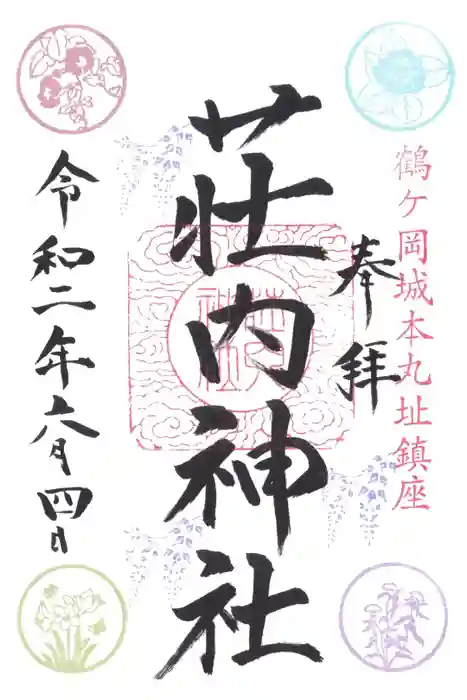 鶴ケ岡城本丸址鎮座
奉拝
荘内神社
令和二年六月四日